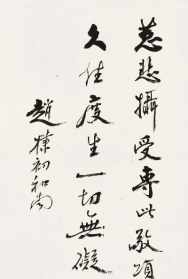 慈悲攝受專此敬頌
久住度生一切無礙
趙樸初和南